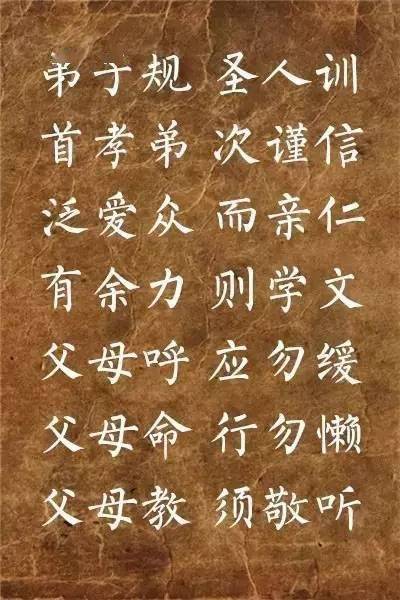 弟子规 圣人训
首孝弟 次谨信
泛爱众 而亲仁
有余力 则学文
父母呼 应勿缓
父母命 行勿懒
父母教 须敬听